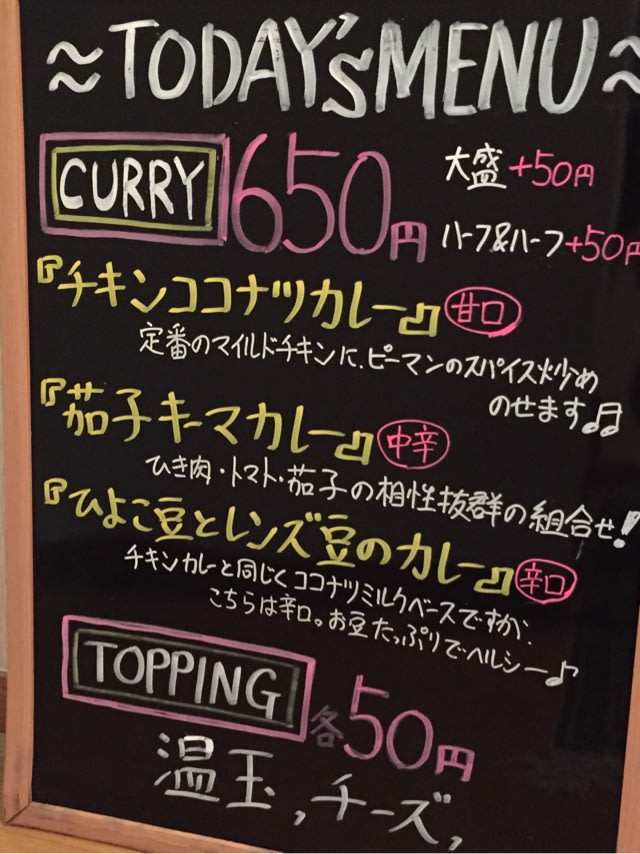 ~TODAY'sMENU~
CURRY 650円
大盛+50円
ハーフ&ハーフ+50円
『チキンココナツカレー』 甘口
定番のマイルドチキンに、ピーマンのスパイス炒め
のせます♫
『茄子キーマカレー』 中辛
ひき肉・トマト・茄子の相性抜群の組合せ!
『ひよこ豆とレンズ豆のカレー』 辛口
チキンカレーと同じくココナツミルクベースですが、
こちらは辛口。お豆たっぷりでヘルシー♪
TOPPING 各50円
温玉,チーズ,